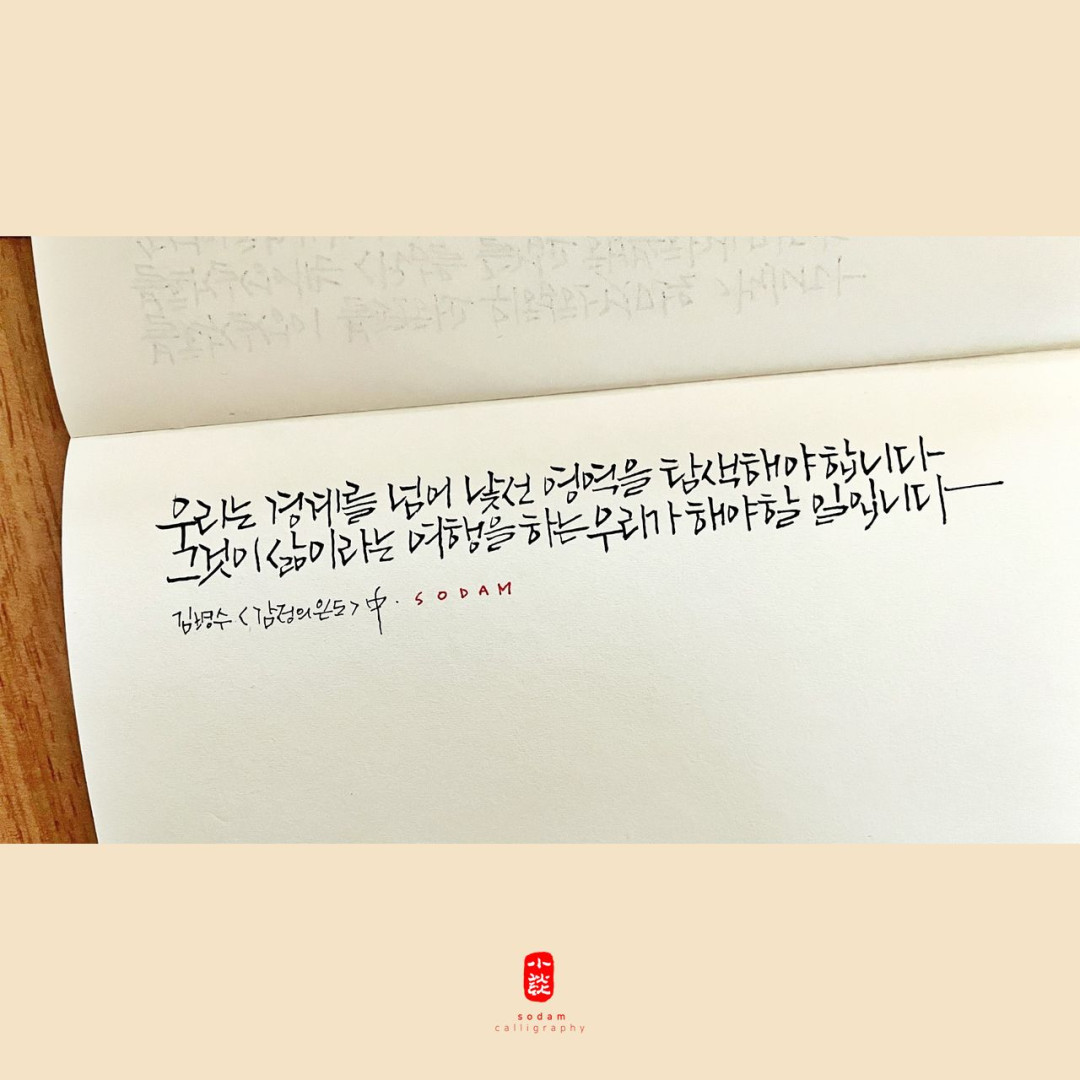 우리는 경계를 넘어 낯선 영역을 탐색해야 합니다
그것이 삶이라는 여행을 하는 우리가 해야할 일입니다
김병수 <감정의 온도> 中. SODAM
小談
sodam
calligraphy